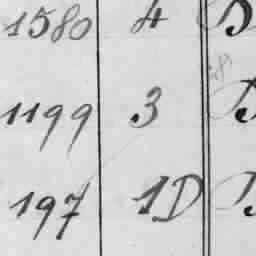 1580 4 B
1199 3 B
197 1D B